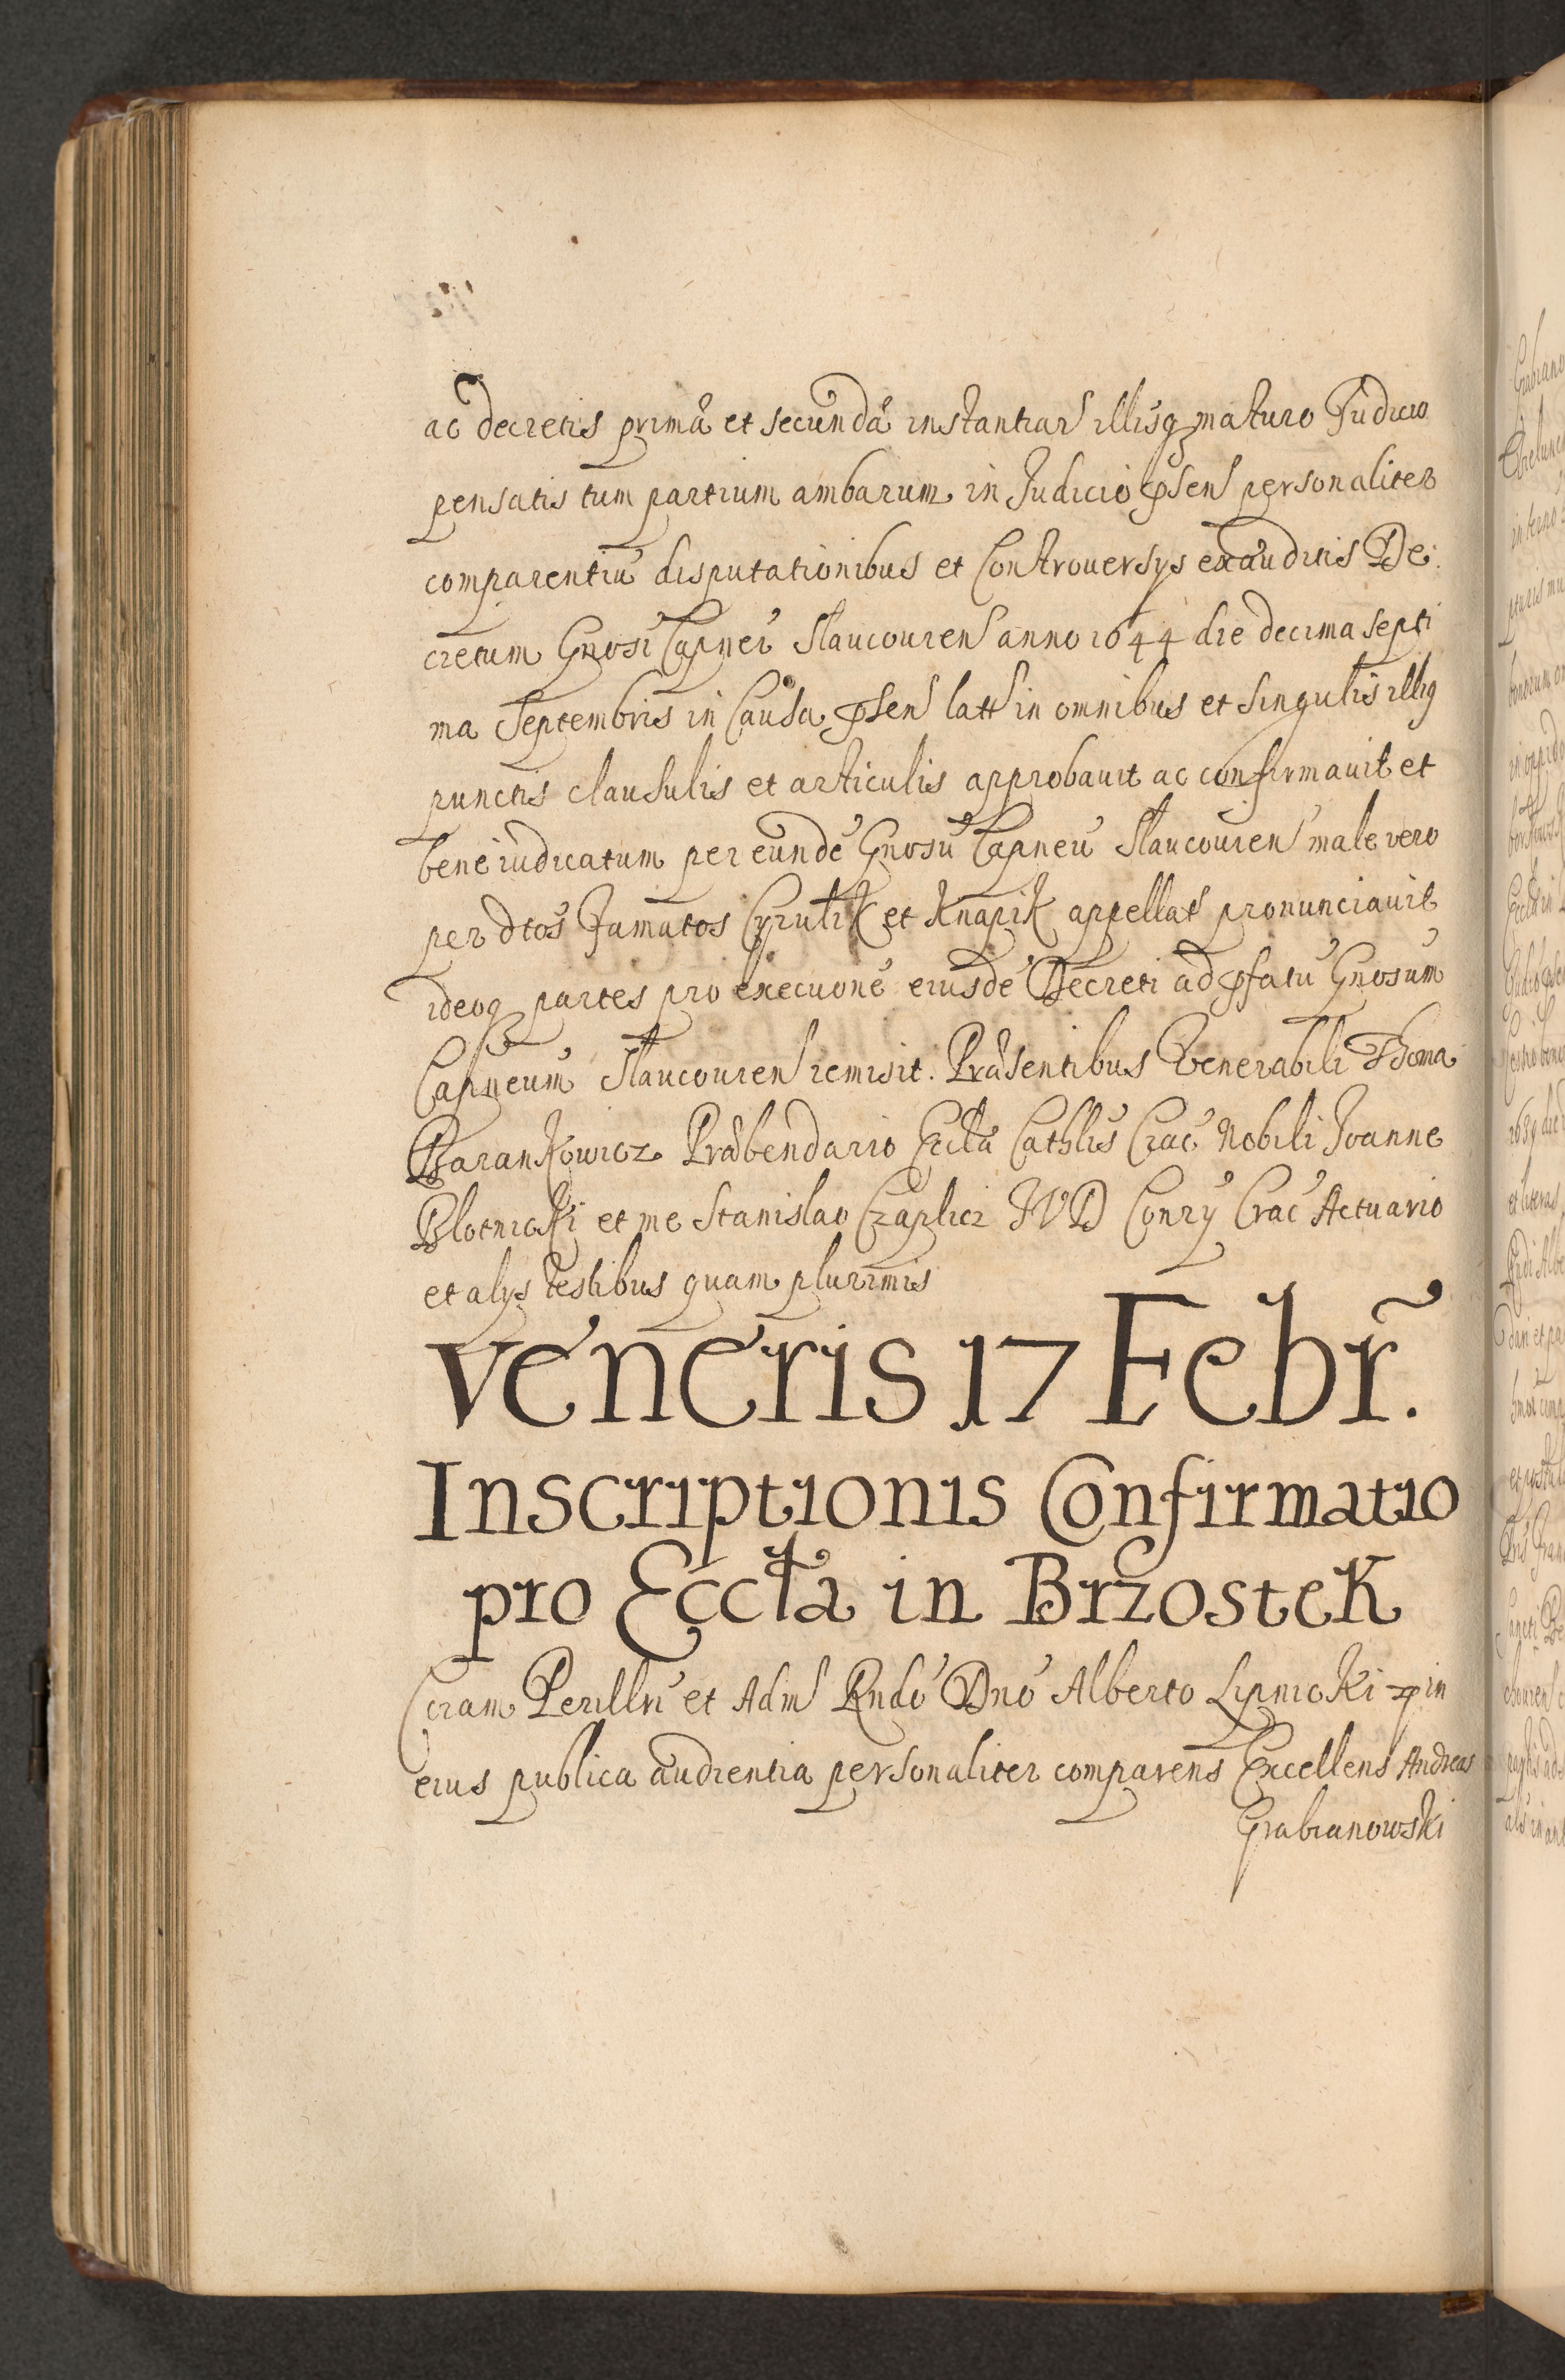 ac decretis primæ et secundæ instantiar illisq maturo Judicio
pensatis tum partium ambarum in Judicio psen personaliter
comparentiu disputationibus et Controversys exauditis De:
cretum Gnosi Capnei Slaucouien anno 1644 die decima septi
ma Septembris in Causa psen latt in omnibus et singulis illiq
punctis clausulis et articulis approbauit ac confirmauit et
bene iudicatum per eunde Gnosu Capneu Slaucouien male vero
per dtos Famatos Cyrulik et Knapik appellat pronunciauit
ideoq partes pro execuone eiusde Decreti ad pfatu Gnosum
Capneum Slaucouien remisit. Præsentibus Venerabili Thoma
Barankowicz Præbendario Ecclæ Cathlis Crac Nobili Joanne
Blotnicki et me Stanislao Czaplicz JVD Conry Crac Actuario
et alys testibus quam plurimis
Veneris 17 Febr.
Inscriptionis Confirmatio
pro Eccla in Brzostek
Coram Perillri et Adm Rndo Dno Alberto Lipnicki p in
eius publica audientia personaliter comparens Excellens Andreas
Grabianowski